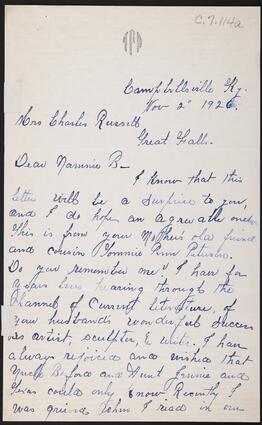 C.7.114a
Campbellsville Ky.
Nov 2" 1926.
Mrs Charles Russell
Great Falls.
Dear Nannie B—
I know that this
letter will be a surprise to you,
and I do hope an agreeable one.
This is from your Mother's old friend
and cousin Tommie Penn
Do you remember me". I have for
years been hearing through the
Channel of Current literature, of
your husbands wonderful success
as artist, sculpter, & writer. I have
always rejoiced and wished that
Uncle Buford and Aunt Jennie and
could only know Recently I
was grieved when I read in our